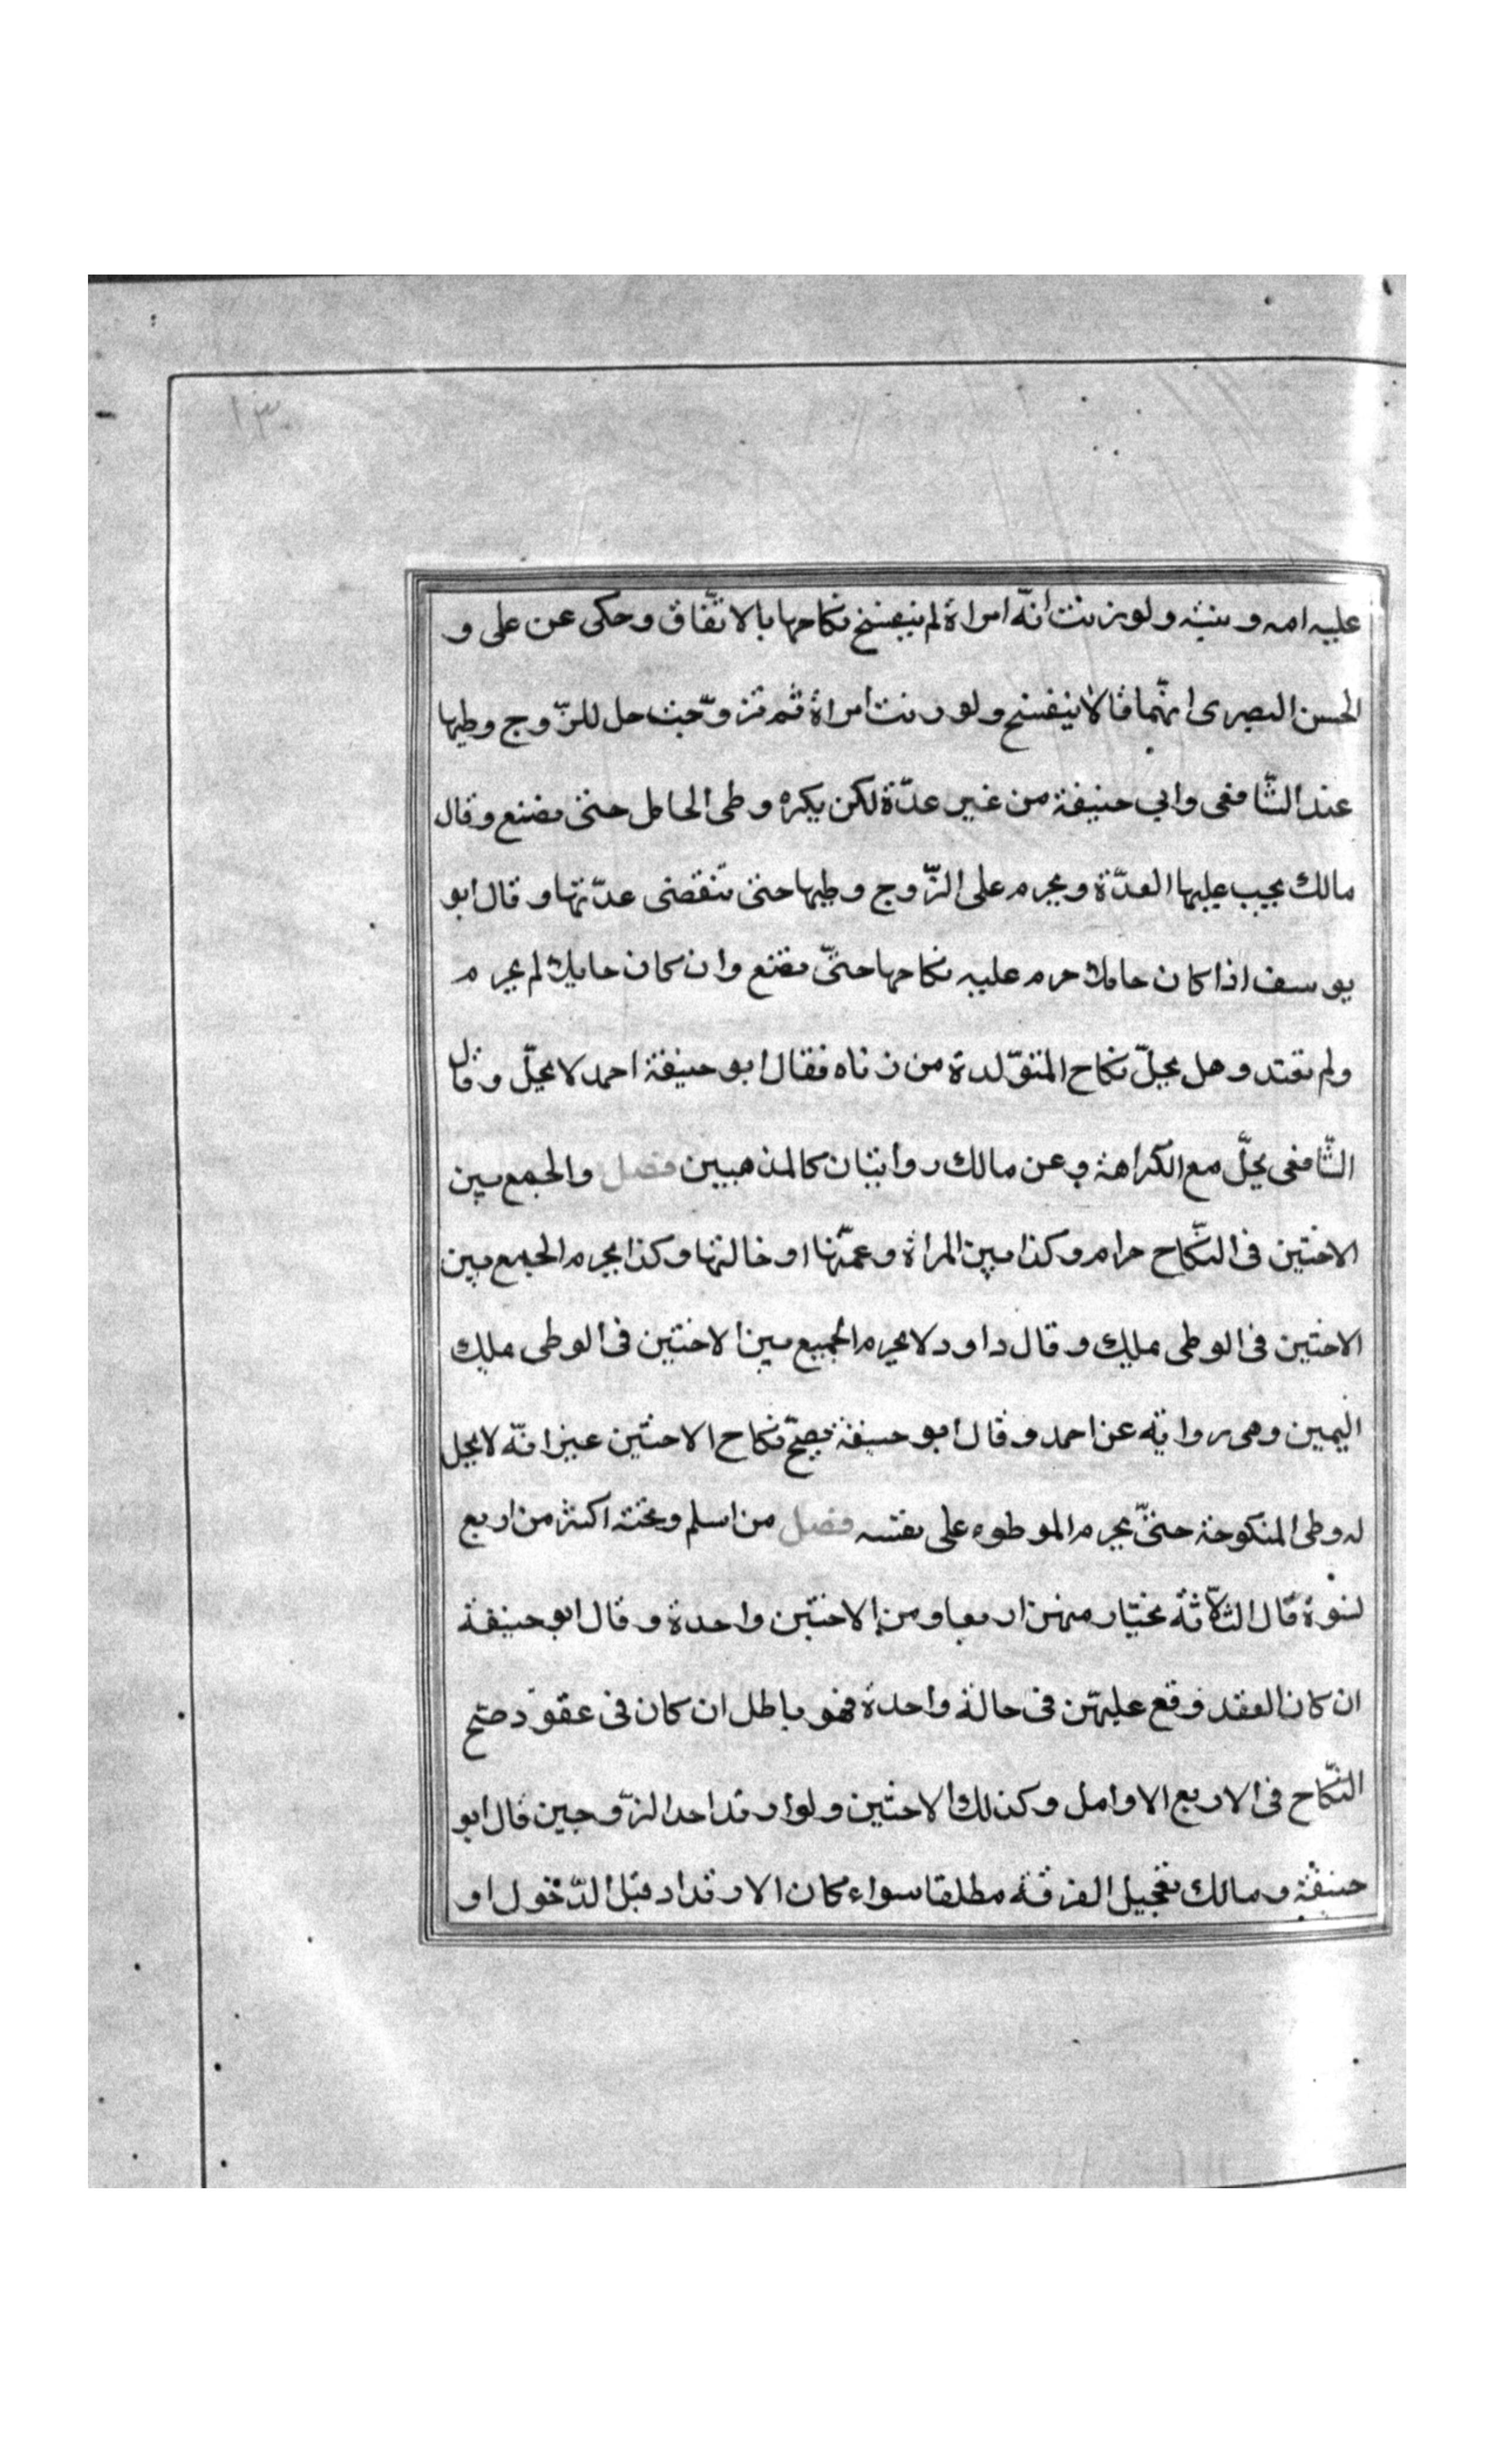 ١٣
عليه امه وبنته ولو زنت انّه امراة لم ينفسخ نكاحها بالاتّفاق وحكى عن على و
الحسن البصرى انّهما قالا ينفسخ ولو زنت امراة ثم تزوّجت حل للزّوج وطيها
عند الشّافعى وابي حنيفة من غير عدّة لكن يكره وطى الحامل حتى تضع وقال
مالك يجب عليها العدّة ويحرم على الزّوج وطيها حتى تنقضى عدّتها وقال ابو
يوسف اذا كان حاملا حرم عليه نكاحها حتّى تضع وان كان حايلا لم يحرم
ولم تعتد وهل يحلّ نكاح المتولّدة من زناه فقال ابو حنيفة احمد لا يحلّ وقال
الشّافعى يحلّ مع الكراهة وعن مالك روايتان كالمذهبين فصل والجمع بين
الاختين فى النكّاح حرام وكذا بين المراة وعمّتها او خالتها وكذا يحرم الجمع بين
الاختين فى الوطى بملك وقال داود لا يحرم الجميع بين الاختين فى الوطى بملك
اليمين وهى رواية عن احمد وقال ابو حنيفة يصحّ نكاح الاختين غير انّه لا يحل
له وطى المنكوحة حتىّ يحرم الموطوه على نفسه فصل من اسلم وتحته اكثر من اربع
نسوة قال الثّلاثة يختار منهن اربعا ومن الاختين واحدة وقال ابو حنيفة
ان كان العقد وقع عليهنّ فى حالة واحدة فهو باطل ان كان فى عقود صحّ
النّكاح فى الاربع الاوايل وكذلك الاختين ولو ارتد احد الزّوجين قال ابو
حنيفة ومالك تعجيل الفرقة مطلقا سواء كان الارتداد قبل الدّخول او